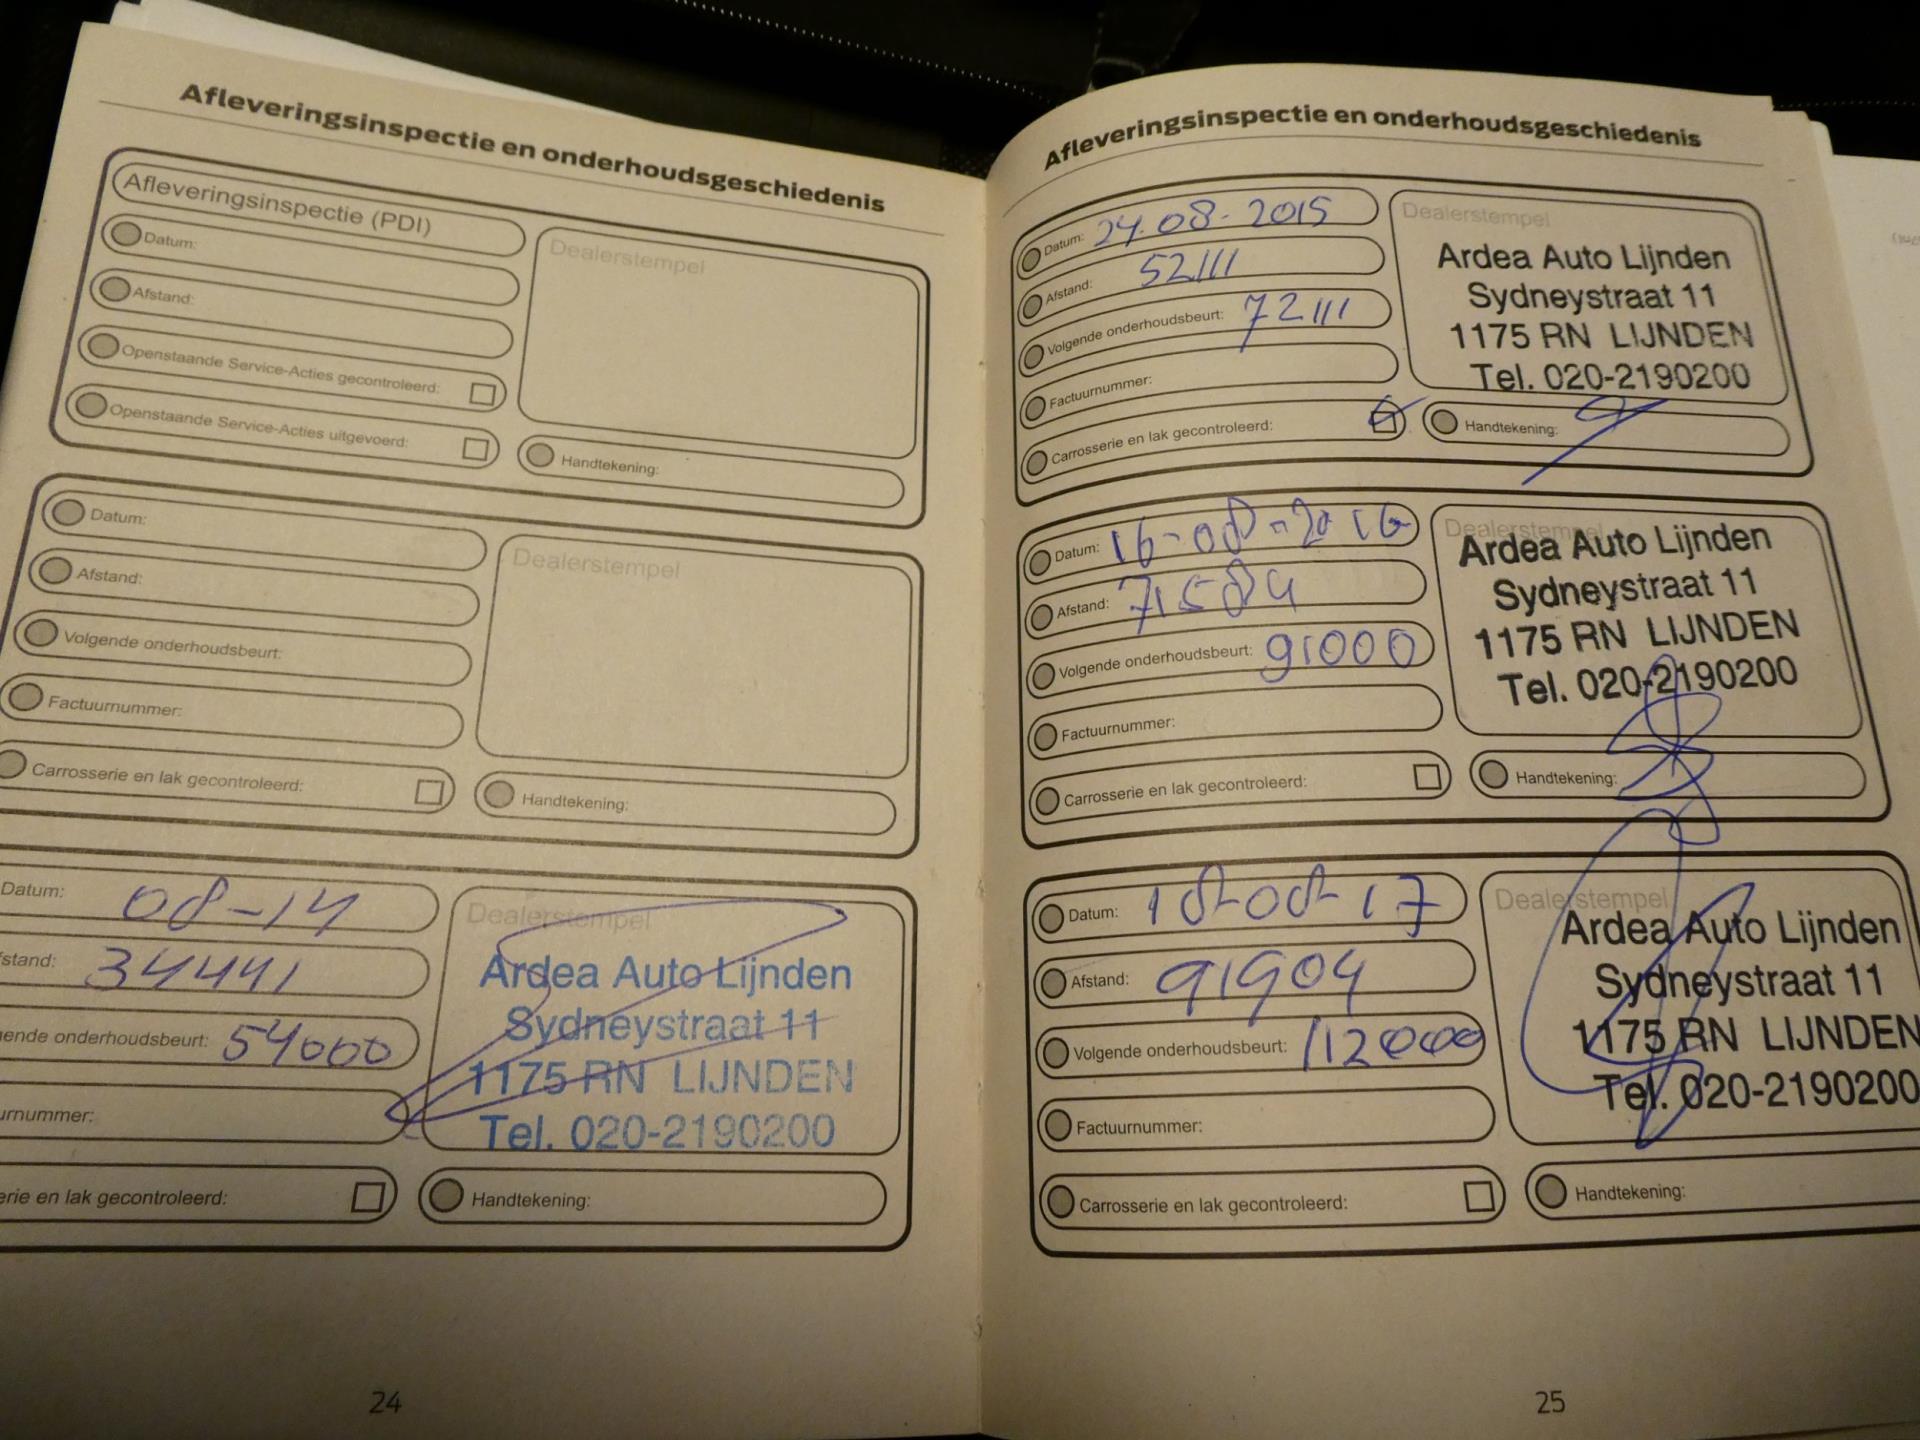 Afleveringsinspectie en onderhoudsgeschiedenis
Afleveringsinspectie (PDI)
Datum:
Afstand:
Openstaande Service-Acties gecontroleerd:
Openstaande Service-Acties uitgevoerd:
Dealerstempel
Handtekening:
Datum:
Afstand:
Volgende onderhoudsbeurt:
Factuurnummer:
Carrosserie en lak gecontroleerd:
Dealerstempel
Handtekening:
Datum: 08-14
fstand: 34441
ende onderhoudsbeurt: 54000
urnummer:
erie en lak gecontroleerd:
Dealerstempel
Ardea Auto Lijnden
Sydneystraat 11
1175 RN LIJNDEN
Tel. 020-2190200
Handtekening:
24
Afleveringsinspectie en onderhoudsgeschiedenis
Datum: 24.08.2015
Afstand: 52111
Volgende onderhoudsbeurt: 72111
Factuurnummer:
Carrosserie en lak gecontroleerd:
Dealerstempel
Ardea Auto Lijnden
Sydneystraat 11
1175 RN LIJNDEN
Tel. 020-2190200
Handtekening:
Datum: 16-08-2016
Afstand: 71584
Volgende onderhoudsbeurt: 91000
Factuurnummer:
Carrosserie en lak gecontroleerd:
Dealerstempel
Ardea Auto Lijnden
Sydneystraat 11
1175 RN LIJNDEN
Tel. 020-2190200
Handtekening:
Datum: 18-08-17
Afstand: 91904
Volgende onderhoudsbeurt: 112000
Factuurnummer:
Carrosserie en lak gecontroleerd:
Dealerstempel
Ardea Auto Lijnden
Sydneystraat 11
1175 RN LIJNDEN
Tel. 020-2190200
Handtekening:
25